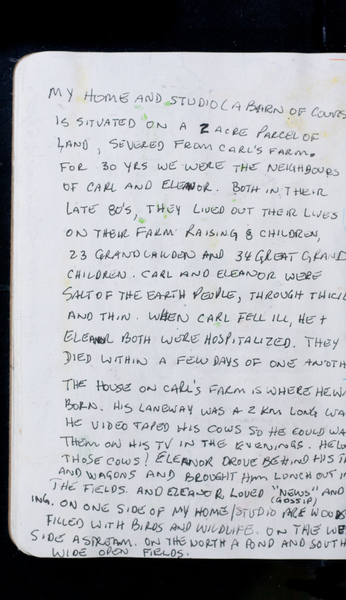 MY HOME AND STUDIO (A BARN OF COURS
IS SITUATED ON A 2 ACRE PARCEL OF
LAND, SEVERED FROM CARL'S FARM.
FOR 30 YRS WE WERE THE NEIGHBOURS
OF CARL AND ELEANOR. BOTH IN THEIR
LATE 80'S, THEY LIVED OUT THEIR LIVES
ON THEIR FARM RAISING 8 CHILDREN,
23 GRANDCHILDEN AND 34 GREAT GRAND
CHILDREN. CARL AND ELEANOR WERE
SALT OF THE EARTH PEOPLE, THROUGH THICK
AND THIN. WHEN CARL FELL ILL, HE +
ELEANOR BOTH WERE HOSPITALIZED. THEY
DIED WITHIN A FEW DAYS OF ONE ANOTH
THE HOUSE ON CARL'S FARM IS WHERE HE WA
BORN. HIS LANEWAY WAS A 2 KM LONG WA
HE VIDEO TAPED HIS COWS SO HE COULD WA
THEM ON HIS TV IN THE EVENINGS. HE LO
THOSE COWS! ELEANOR DROVE BEHIND HIS T
AND WAGONS AND BROUGHT HIM LUNCH OUT I
THE FIELDS. AND ELEANOR LOVED "NEWS" AND
(GOSSIP)
ING. ON ONE SIDE OF MY HOME/STUDIO ARE WOODS
FILLED WITH BIRDS AND WILDLIFE. ON THE WE
SIDE A STREAM. ON THE NORTH A POND AND SOUTH
WIDE OPEN FIELDS.